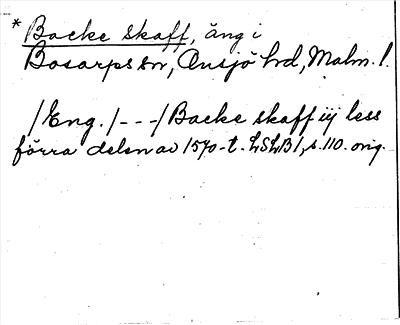 * Backe skaff, äng i
Bosarps sn, Onsjö hd, Malm. l.
/Eng./---/Backe skaff iij less
förra delen av 1570-t. LSLB1, s. 110. orig.